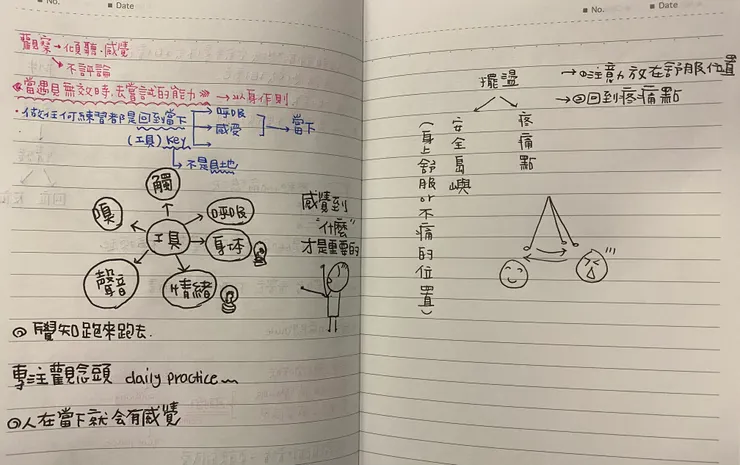 No.
Date
觀察→傾聽、感覺
不評論
當遇見無效時、去嘗試的能力 → 以身作則
・做任何練習都是回到當下
呼吸
感受
→ 當下
(工具) key
不是目地
觸
嗅
呼吸
工具
身体
聲音
情緒
感覺到
"什麼"
才是重要的
◎ 覺知跑來跑去.
專注觀念頭 daily practice
◎人在當下就会有感覺
No.
Date
擺溫
→①注意力放在舒服位置
→②回到疼痛點
疼痛點
安全島嶼
(身上舒服or不痛的位置)